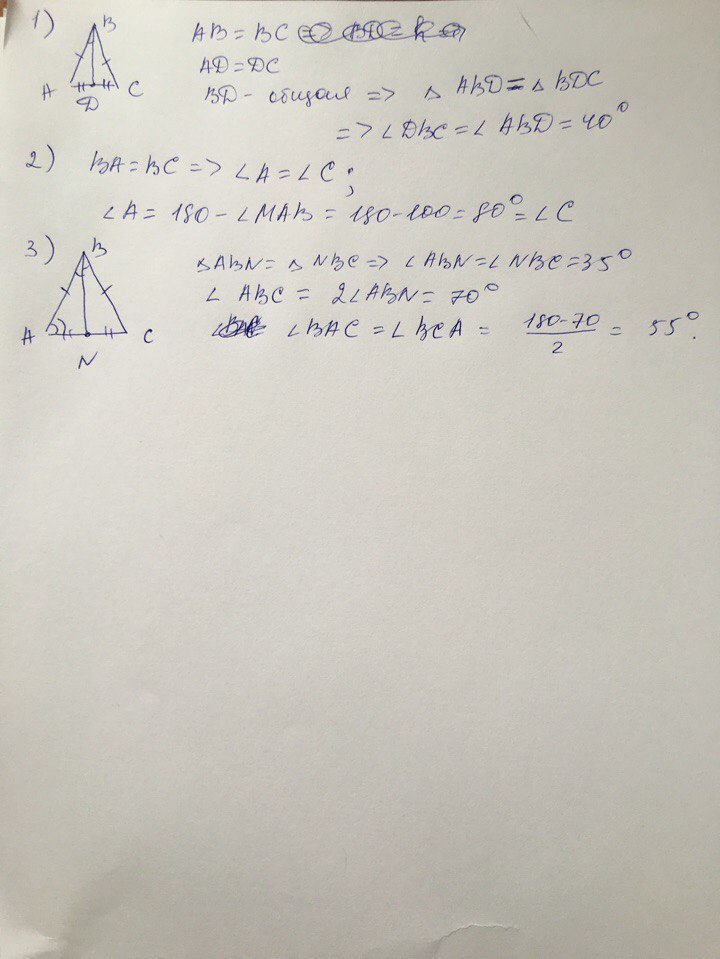 1) B A D C
AB = BC
AD = DC
BD - общая => △ ABD = △ BDC
=> ∠DBC = ∠ABD = 40°
2) BA = BC => ∠A = ∠C ;
∠A = 180 - ∠MAB = 180 - 100 = 80° = ∠C
3) B A N C
△ABN = △ NBC => ∠ABN = ∠NBC = 35°
∠ ABC = 2∠ABN = 70°
∠BAC = ∠BCA = 180-70 / 2 = 55°.